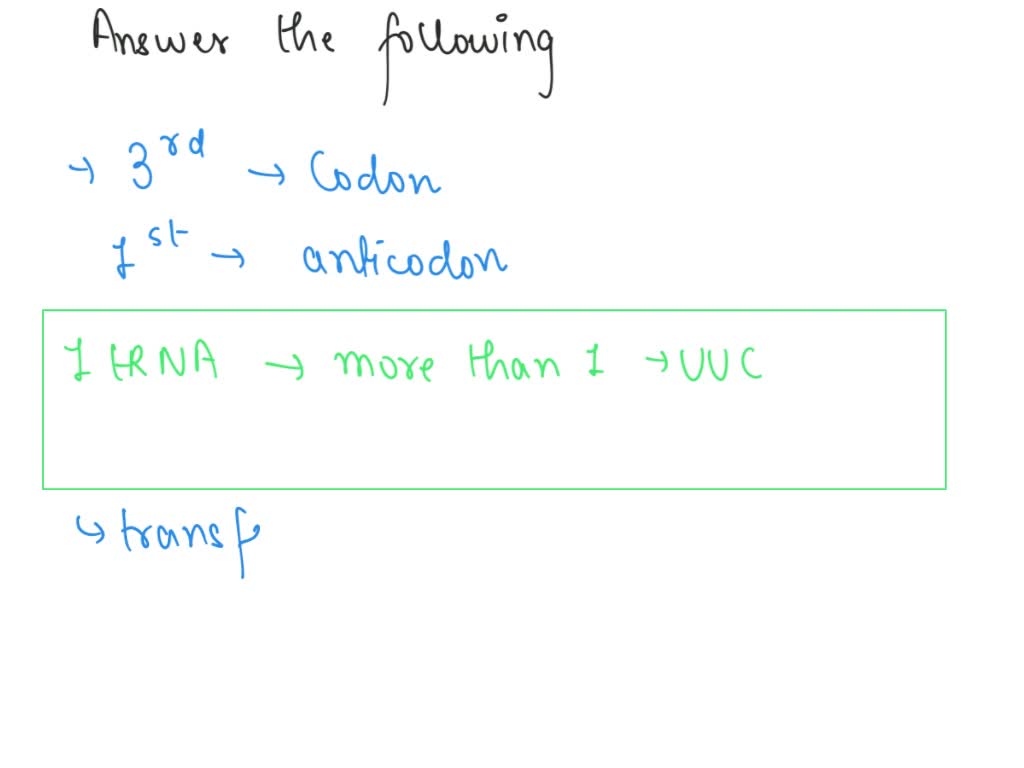 Answer the following
→ 3rd → Codon
1st → anticodon
1 tRNA → more than 1 → UUC
↳ transf